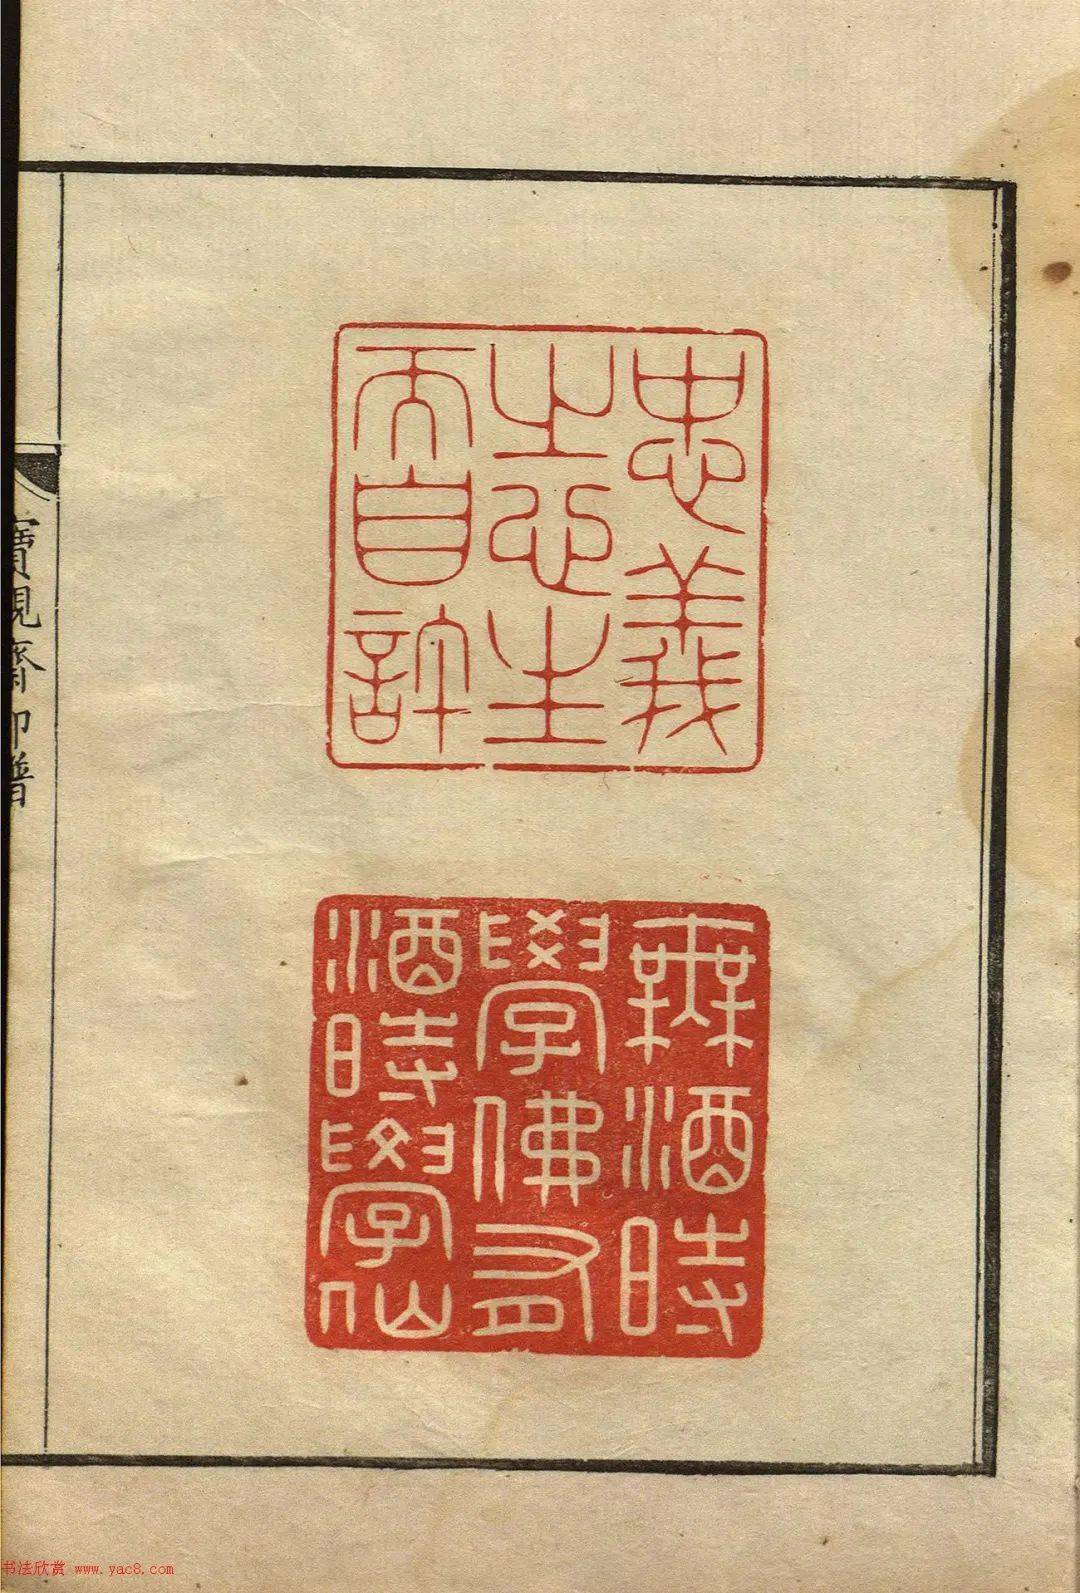 忠義
之心生
而自許
無酒時
學佛有
酒時學仙
寶硯齋印譜
书法欣赏 www.yac8.com